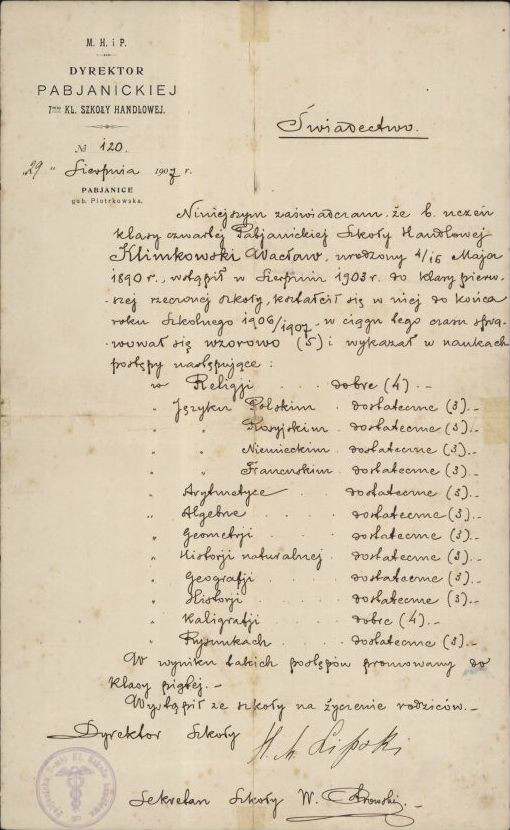 M. H. i P.
DYREKTOR
PABJANICKIEJ
7MIO KL. SZKOŁY HANDLOWEJ.
№ 120.
„29 „ Sierpnia 1907 r.
PABJANICE
gub. Piotrkowska.
Świadectwo.
Niniejszym zaświadczam, że b. uczeń
klasy czwartej Pabjanickiej Szkoły Handlowej
Klimkowski Wacław, urodzony 4/16 Maja
1890 r., wstąpił w Sierpniu 1903 r. do klasy pierw-
-szej rzeczonej szkoły, kształcił się w niej do końca
roku szkolnego 1906/1907, w ciągu tego czasu spra-
-wował się wzorowo (5) i wykazał w naukach
postępy następujące :
w Religji . . . dobre (4). -
" Języku Polskim . dostateczne (3). -
" " Rosyjskim . dostateczne (3). -
" " Niemieckim . dostateczne (3). -
" " Francuskim . dostateczne (3). -
" Arytmetyce . . dostateczne (3). -
" Algebrze . . . dostateczne (3). -
" Geometrji . . . dostateczne (3). -
" Historji naturalnej . dostateczne (3). -
" Geografji . . . dostateczne (3). -
" Historji . . . dostateczne (3). -
" Kaligrafji . . . dobre (4). -
" Rysunkach . . dostateczne (3). -
W wyniku takich postępów promowany do
klasy piątej. -
Wystąpił ze szkoły na życzenie rodziców. -
Dyrektor Szkoły
Lipski
Sekretarz Szkoły W.